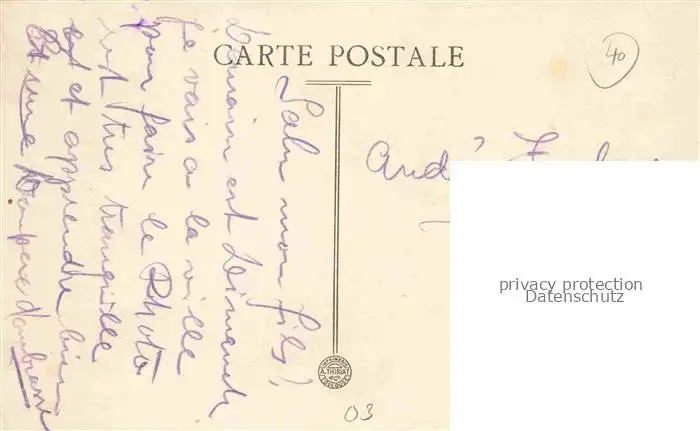 CARTE POSTALE
40
André
Salu mon fils!
Demain est Dimanche
Je vais a la ville
pour faire le Photo
soit tres tranquille
et apprendre bien
Et
IMPRIMERIE
A. THIRIAT
TOULOUSE
03
privacy protection
Datenschutz